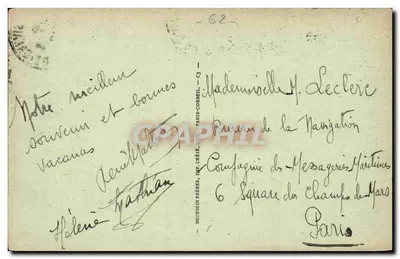 62
Notre meilleur
souvenir et bonnes
vacances
René Mathian
Hélène Mathian
Mademoiselle M. Leclerc
Bureau de la Navigation
Compagnie des Messageries Maritimes
6 Square du Champs de Mars
Paris
CPAPHIL